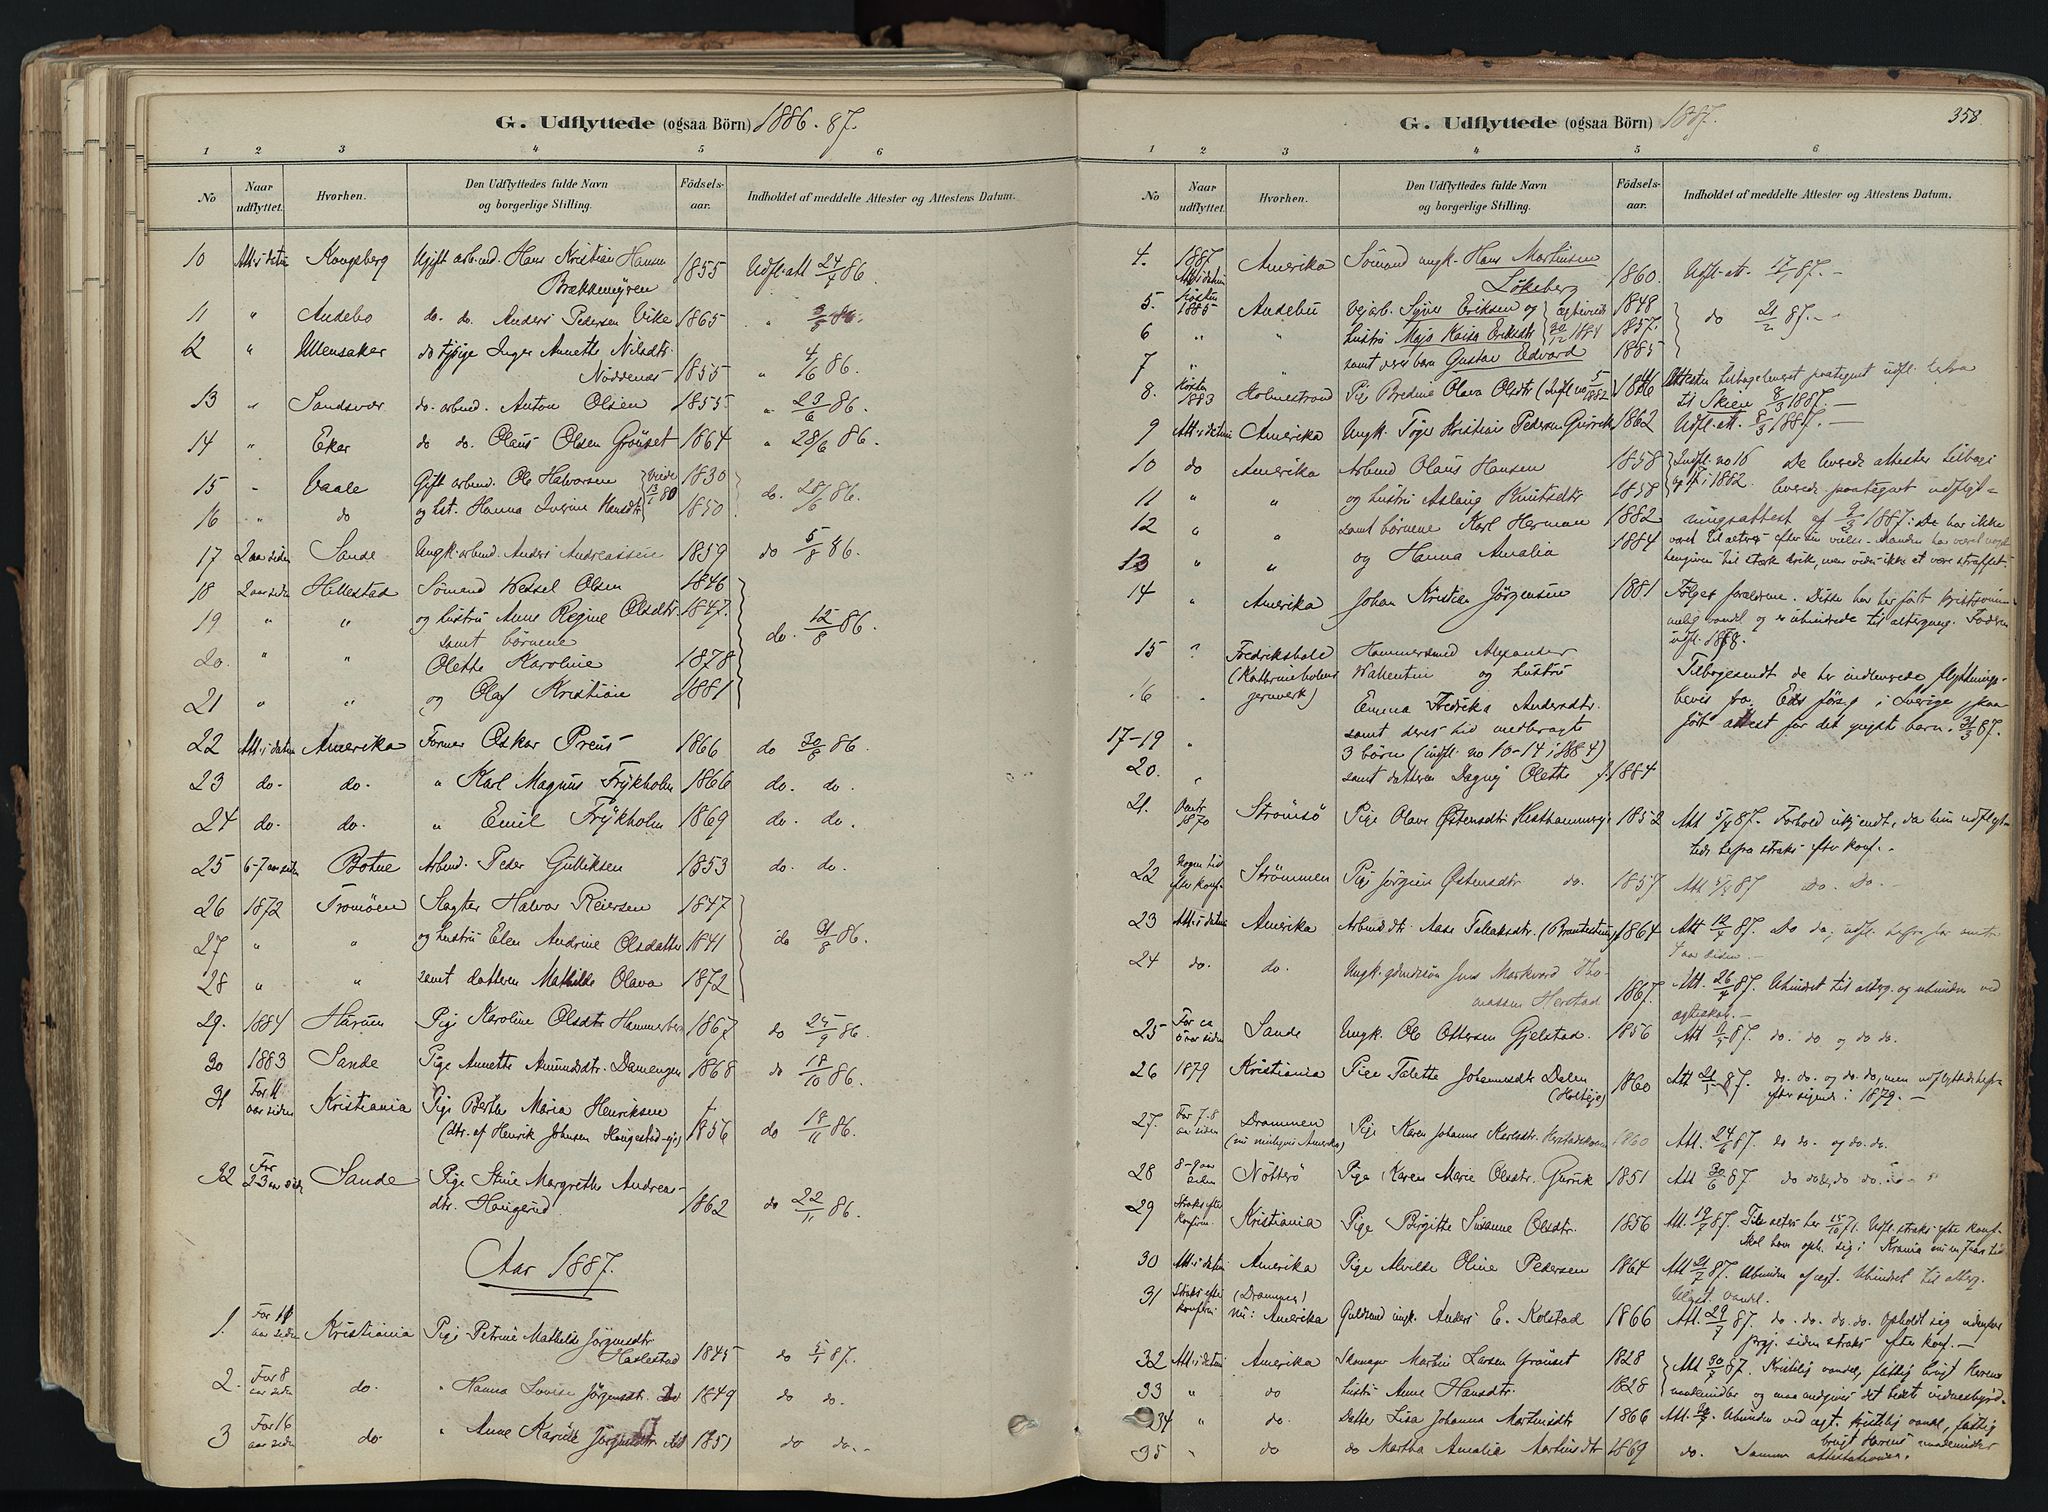 G. Udflyttede (ogsaa Börn) 1886-87.
1 2 3 4 5 6
No Naar udflyttet. Hvorhen. Den Udflyttedes fulde Navn og borgerlige Stilling. Födsels-aar. Indholdet af meddelte Attester og Attestens Datum.
10 Att. i datum Kongsberg Ugift arb.md. Hans Kristian Hansen 1855 Udfl. att 24/7 86.
Brækkemyren
11 " Andebo do. do. Anders Pedersen Vike 1865 " 3/8 86.
12 " Ullensaker do tjpige Inger Annette Nilsdtr.
Nöddenes 1855 " 4/6 86.
13 " Sandsvær do. arbmd. Anton Olsen 1855 " 23/6 86.
14 " Eker do do. Olaus Olsen Grönset 1864 " 28/6 86.
15 - Vaale Gift arbmd. Ole Halvorsen 1830
16 " do og hst. Hanna Iverine Hansdtr 1850 do. 28/6 86.
17 2 aar siden Sande Ungk. arbmd. Anders Andreassen 1859 do 5/8 86.
18 2 aar siden Hillestad Sömand Wessel Olsen 1846
19 " " og hustru Anne Regine Olsdtr. 1847. do. 12/8 86.
samt börnene
20. " " Olette Karoline 1878
21 " " og Olaf Kristian 1881
22 Att. i datum Amerika Former Oskar Preus 1866 do 30/8 86.
23 do. do. " Karl Magnus Frykholm 1866 do. do.
24 do. do. " Emil Frykholm 1869 do. do.
25 6-7 aar siden Botne Arbmd. Peder Gulliksen 1853 do. do.
26 1872 Tromöen Slagter Halvor Reiersen 1847
27 " " og hustru Elen Andrine Olsdatter 1841 do 31/8 86.
28 " " samt datteren Mathilde Olava 1872
29. 1884 Hurum Pige Karoline Olsdtr Hammerber 1867 do 25/9 86.
30 1883 Sande Pige Annette Amundsdtr. Damengen 1868 do 18/10 86.
31 For 11 aar siden Kristiania Pige Berthe Maria Henriksen
(dtr. af Henrik Johnsen Haugestad-eje) 1856 do 18/11 86.
32 For 23 aar siden Sande Pige Stine Margrethe Andreas-
dtr. Haugerud 1862 do 22/11 86.
Aar 1887.
1. For 11 aar siden Kristiania Pige Petrine Mathilde Jörgensdtr
Haslestad 1845 do 5/1 87.
2. For 8 aar siden do. " Hanna Lovise Jörgensdtr. do 1849 do do.
3 For 16 aar siden do " Anne Karine Jörgensdtr. 1851 do do.
G. Udflyttede (ogsaa Börn) 1887. 358.
1 2 3 4 5 6
No Naar udflyttet. Hvorhen. Den Udflyttedes fulde Navn og borgerlige Stilling. Födsels-aar. Indholdet af meddelte Attester og Attestens Datum.
4. 1887 Att. i datum Amerika Sömand ungk. Hans Martinsen
Lökeberg 1860. Udfl. att. 17/1 87.
5. Hösten 1885 Andebu Vejarb. Syver Eriksen og 1848
6 " " hustru Maja Kaisa Eriksdtr 30/12 1884 1857. do 21/2 87.
7 " " samt deres barn Gustav Edvard 1885
8. Hösten 1883 Holmestrand Pige Bredine Olava Olsdtr (Indfl. no 5 1882) 1866 Attesten tilbageleveret paategnet udfl. herfra
til Skien 8/3 1887.
9 Att. i datum Amerika Ungk. Töger Kristian Pedersen Gurrik 1862 Udfl. att. 8/3 1887.
10 do Amerika Arbmd Olaus Hansen 1858 Indfl. no 16 De leverede attester tilbage
11 " " og hustru Aslaug Knutsdtr 1858 og 17 i 1882. leverede paategnet udflyt-
12 " " samt börnene Karl Herman 1882 ningsattest af 9/3 1887: De har ikke
13 " " og Hanna Amalia 1884 været til alters efter sin vielse. Manden har været
hengiven til stærk drik, men vides ikke at være straffet.
14 " Amerika Johan Kristian Jörgensen 1881 Fölger forældrene. Disse har her fört kristsöm-
melig vandel og er uhindrede til altergang. Faderen
udfl. 1888.
15 " Fredrikshald Hammersmed Alexander
16 " (Kathrineholms jernverk) Wallentin og hustru
Emma Fredrika Andersdtr. Tilbagesendt de her indleverede flytnings-
17-19 " samt deres hid medbragte bevis fra Eds förs. i Sverige, paa-
3 börn (indfl. no 10-14 i 1884) fört attest for det yngste barn. 31/3 87.
20. " samt datteren Dagny Olette f. 1884
21. 1870 Strömsö Pige Olave Östensdtr Hesthammerej 1852 Att 5/4 87. Forhold ukjendt, da hun udflyt-
tede herfra straks efter konf.
22 Nogen tid efter konf. Strömmen Pige Jörgine Östensdtr do. 1857 Att. 5/4 87 Do. Do.
23 Att. i datum Amerika Arbmd dtr. Aase Tallaksdtr. 1864 Att 12/4 87. Do do, udfl. herfra for omtr.
4 aar siden.
24 do. do. Ungk. gdmdssön Jens Markvard Tho-
massen Herstad 1867. Att. 26/4 87. Uhindret til alterg. og uhindret ved
ægteskab.
25 For ca aar siden Sande Ungk. Ole Ottersen Gjelstad. 1856 Att 87. do. do og do do.
26 1879 Kristiania Pige Talette Johannesdtr Dalen
(Holteje) 1860 Att 87. do. do. og do. do, men udflyttede herfra
efter sigende i 1879.
27. For 7.8 aar siden Drammen (nu muligens Amerika) Pige Karen Johanne Karlsdtr. 1860 Att. 24/6 87. do do. og do. do.
28 8-9 aar siden Nötterö Pige Karen Marie Olsdtr. Gurrik 1851 Att 30/6 87 do do do, do do.
29 Straks efter konfirm. Kristiania Pige Birgitte Susanne Olsdtr. 1856 Att. 19/7 87. Til alters her 15/10 71. Udfl. straks efter konf.
Skal have oph. sig i Krania
30 Att. i datum Amerika Pige Alvilde Oline Pedersen 1864 Att 21/7 87. Uhindret af ægt. Uhindret til alterg.
Ulast. vandel.
31 Straks efter konfirm (Drammen) nu: Amerika Guldsmd ungk. Anders E. Kolstad 1866 Att. 29/7 87. do. do. do. do. Opholdt sig udenfor
prgj. siden straks efter konf.
32 Att. i datum Amerika Skomager Martin Larsen Grönset 1828 Att 30/7 87. Kristelig vandel, flittig brugt Herrens
33 " do hustru Anne Hansdtr. 1828 naademidler og maa medgives det bedst vidnesbyrd
34 " do. Datter Lisa Johanna Martinsdtr 1866 Att. Uhindret ved ægt. kristelig vandel, flittig
brugt Herrens naademidler
35 " do do Martha Amalia Martinsdtr 1869 do. Samme attestationer.